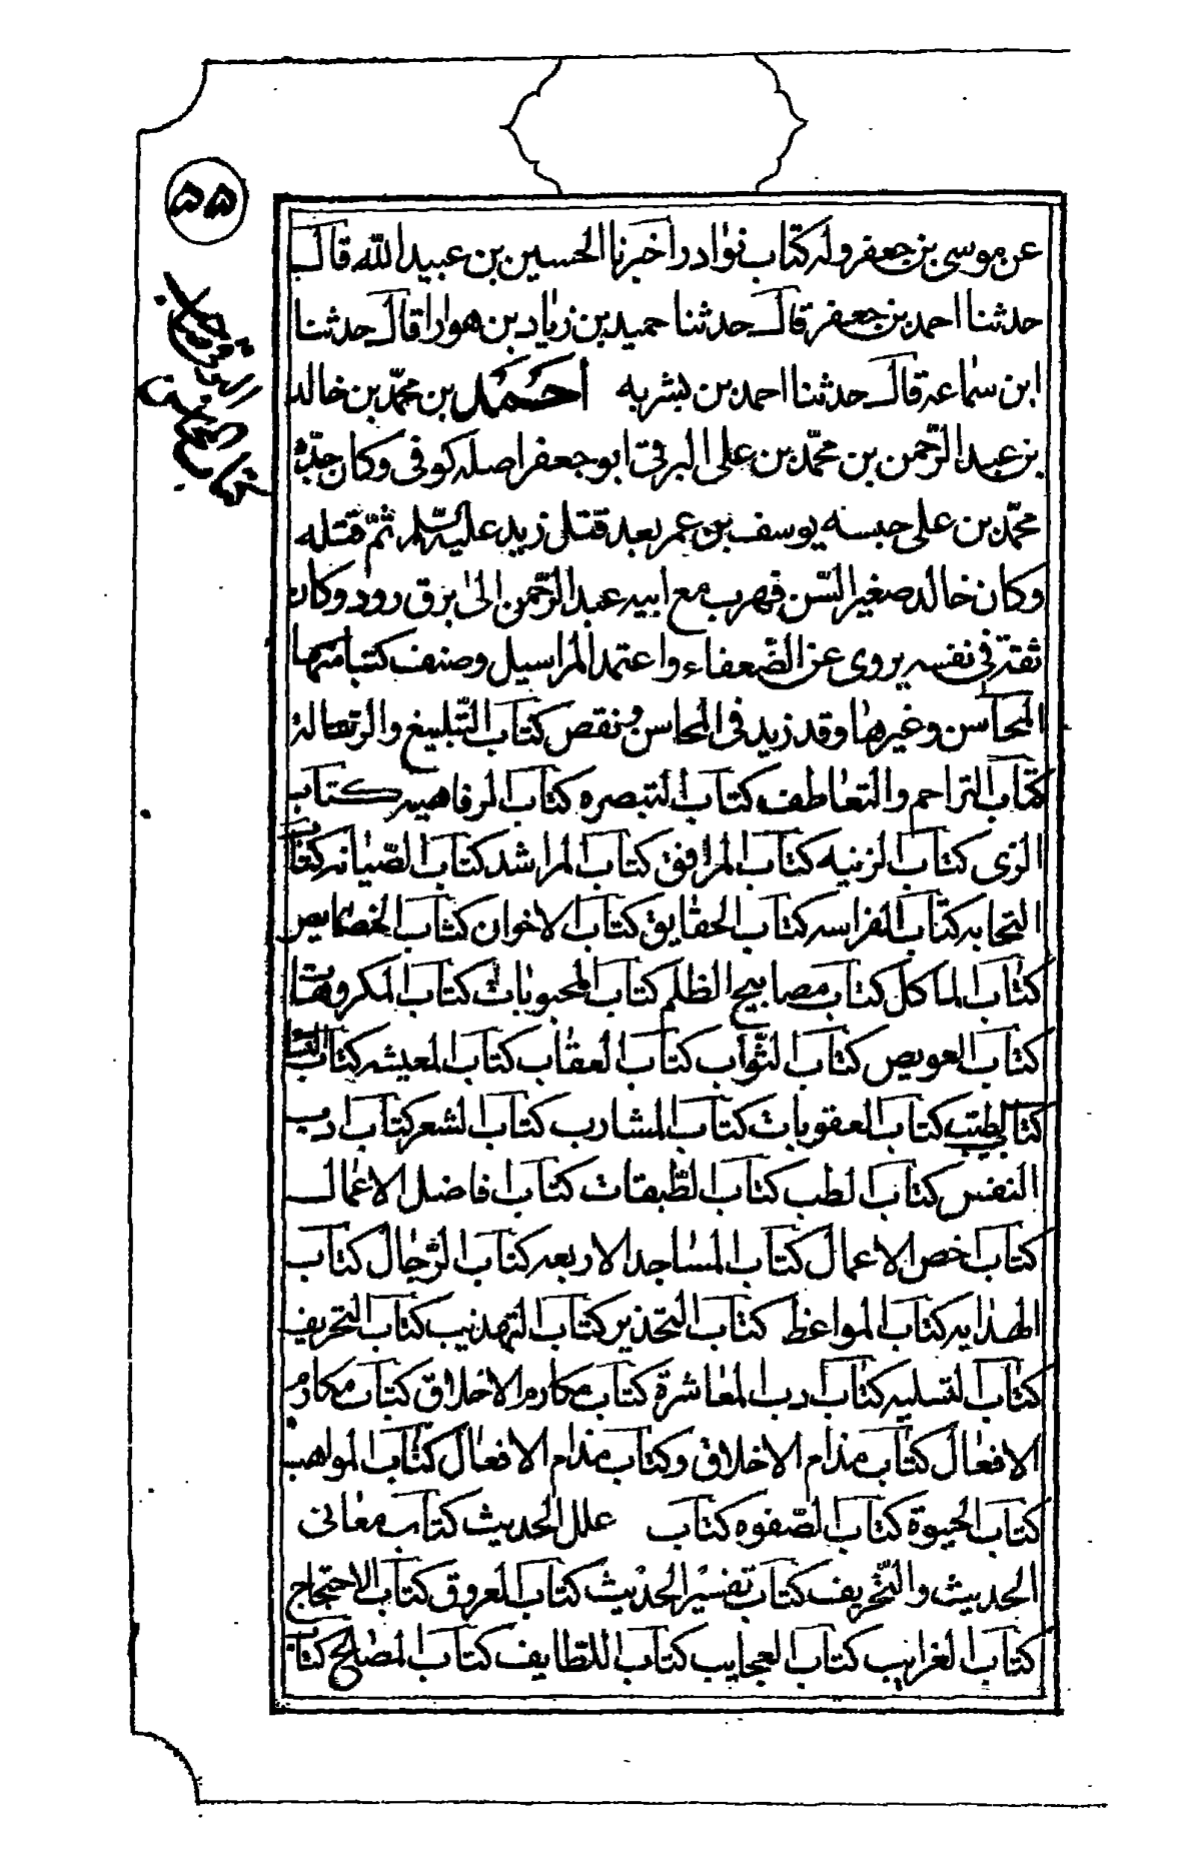 ٥٥
عن موسى بن جعفر وله كتاب نوادر اخبرنا الحسين بن عبيد الله قال
حدثنا احمد بن جعفر قال حدثنا حميد بن زياد بن هوارا قال حدثنا
ابن سماعه قال حدثنا احمد بن بشر به احمد بن محمّد بن خالد
بن عبد الرّحمن بن محمّد بن على البرقى ابو جعفر اصله كوفى وكان جدّه
محمّد بن على حبسه يوسف بن عمر بعد قتل زيد عليه السّلم ثمّ قتله
وكان خالد صغير السّن فهرب مع ابيه عبد الرّحمن الى برق رود وكان
ثقة فى نفسه يروى عن الضّعفاء واعتمد المراسيل وصنف كتبا منها
المحاسن وغيرها وقد زيد فى المحاسن ونقص كتاب التّبليغ والرّسالة
كتاب التراحم والتعاطف كتاب التبصره كتاب الرفاهيه كتاب
الزى كتاب الزينه كتاب المرافق كتاب المراشد كتاب الصّيانه كتاب
النجابه كتاب الفراسه كتاب الحقايق كتاب الاخوان كتاب الخصايص
كتاب الماكل كتاب مصابيح الظلم كتاب المحبوبات كتاب المكروهات
كتاب العويص كتاب الثّواب كتاب العقاب كتاب المعيشه كتاب النسا
كتاب الطيب كتاب العقوبات كتاب المشارب كتاب الشعر كتاب ادب
النفس كتاب الطب كتاب الطّبقات كتاب افاضل الاعمال
كتاب اخص الاعمال كتاب المساجد الاربعه كتاب الرّجال كتاب
الهدايه كتاب المواعظ كتاب التحذير كتاب التهذيب كتاب التحريف
كتاب التسليه كتاب ادب المعاشرة كتاب مكارم الاخلاق كتاب مكارم
الافعال كتاب مذام الاخلاق وكتاب مذام الافعال كتاب المواهب
كتاب الحيوة كتاب الصّفوه كتاب علل الحديث كتاب معانى
الحديث والتّحريف كتاب تفسير الحديث كتاب العروق كتاب الاحتجاج
كتاب الغرايب كتاب العجايب كتاب اللطايف كتاب المصالح كتاب